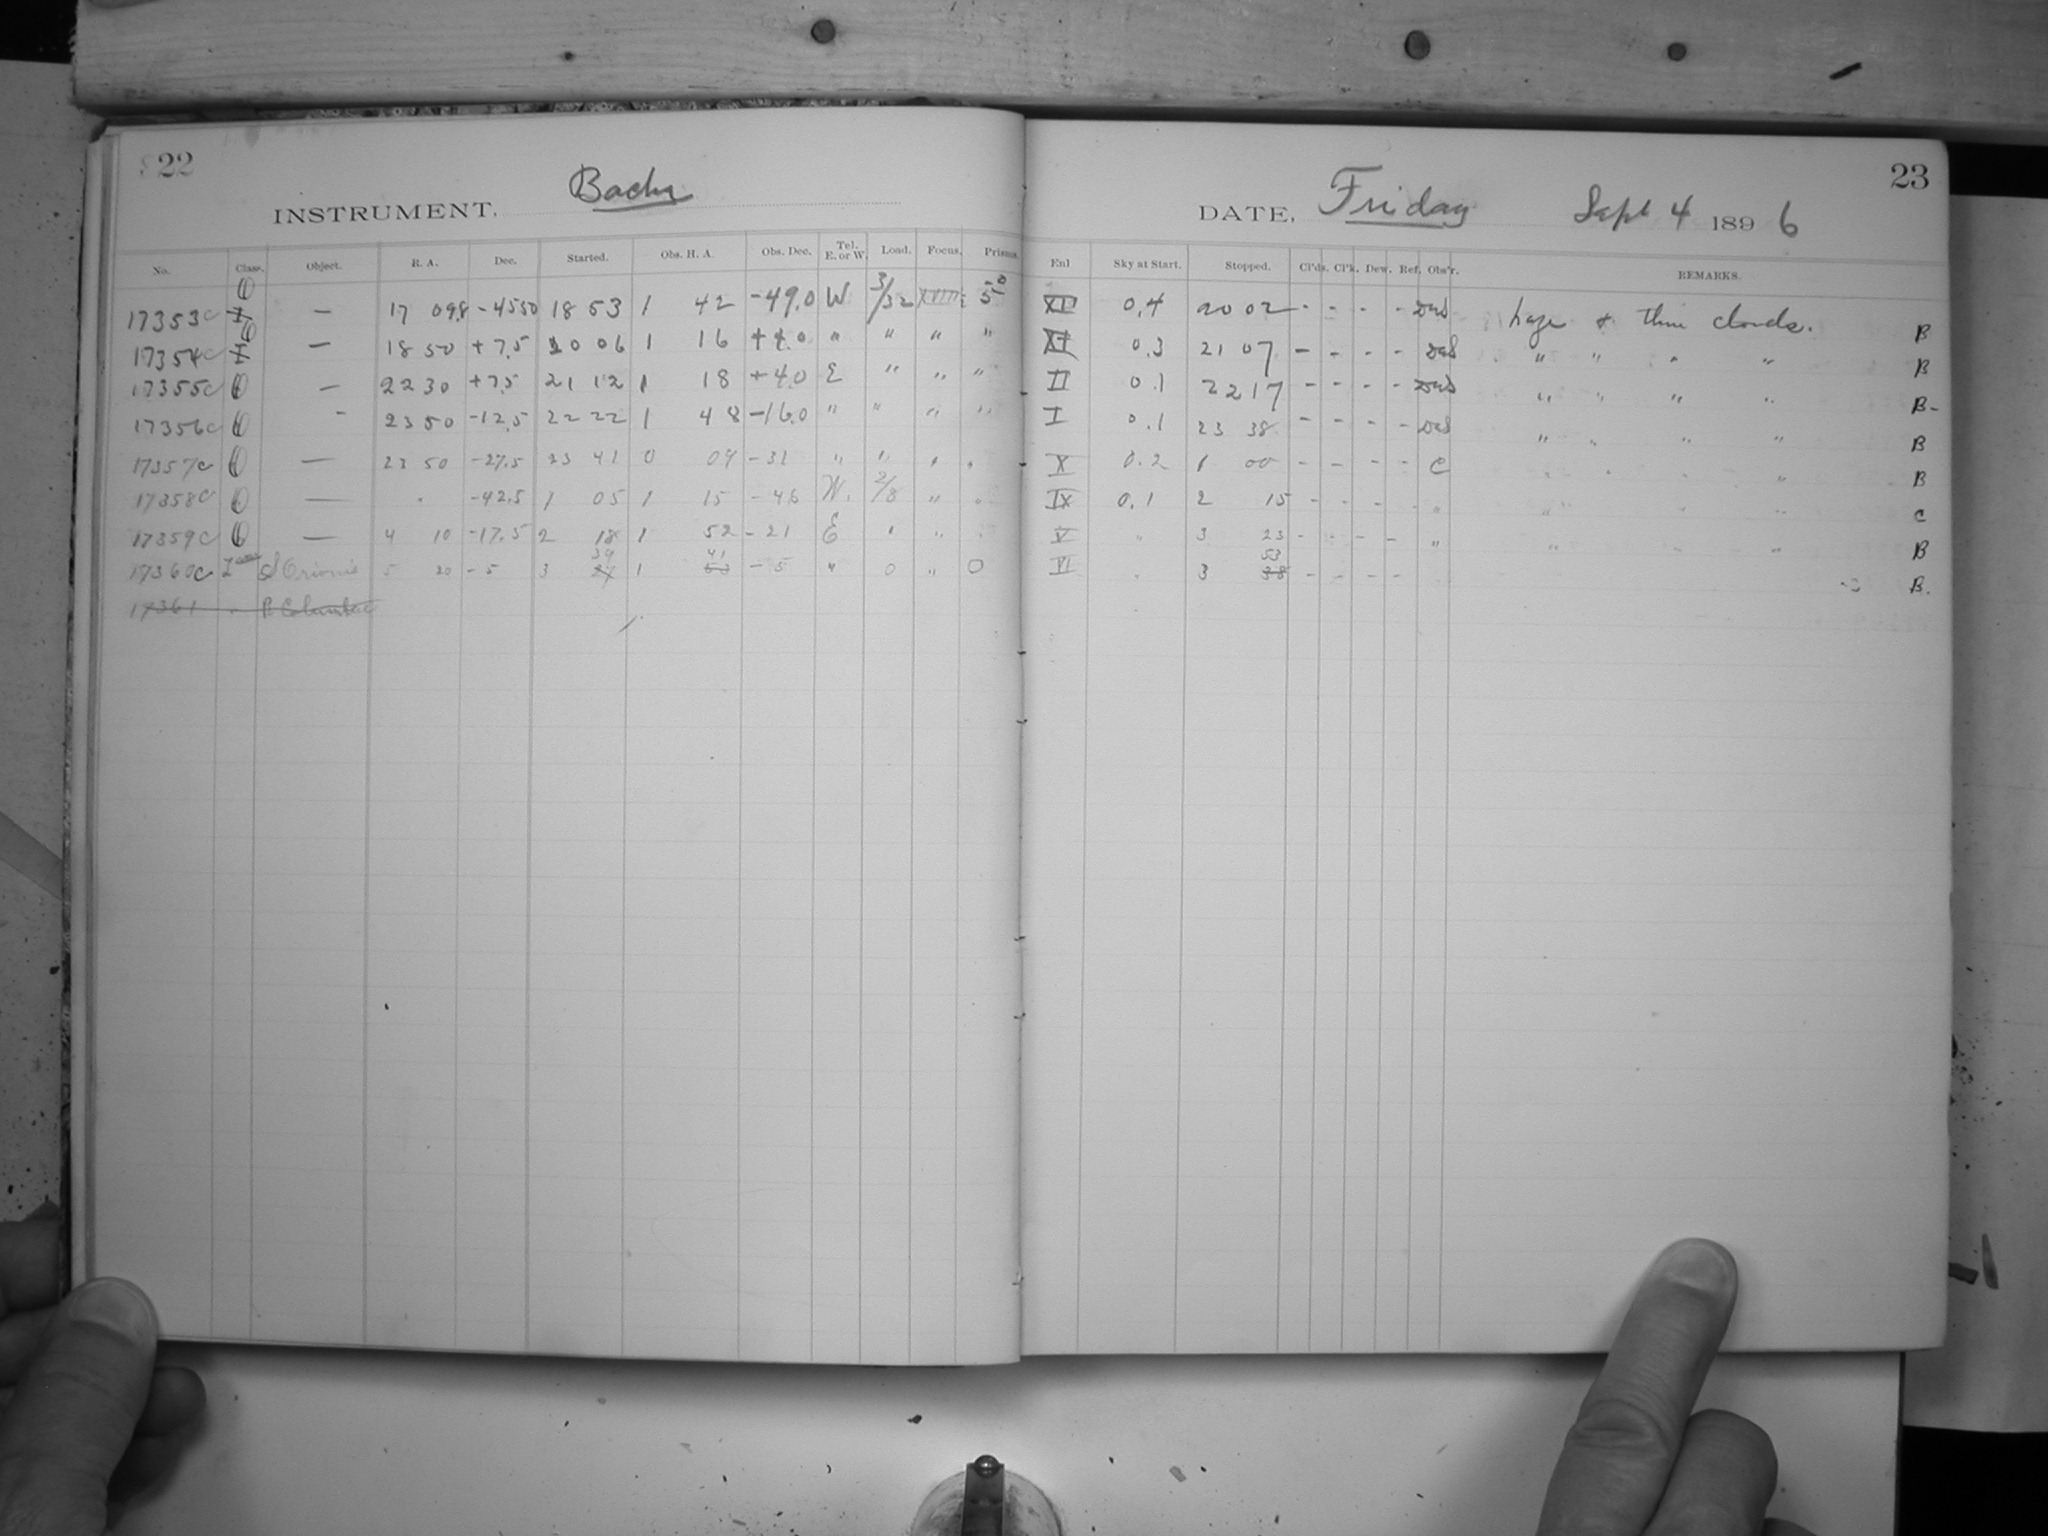 22
INSTRUMENT, Bache
No. Class. Object. R. A. Dec. Started. Obs. H. A. Obs. Dec. Tel. E. or W. Load. Focus. Prisms.
17353c — 17 09.8 -4550 18 53 1 42 -49.0 W 3/32
17354c — 18 50 +7.5 20 06 1 16 +4.0 " " " "
17355c — 22 30 +7.5 21 12 1 18 +4.0 E " " "
17356c - 23 50 -12.5 22 22 1 48 -16.0 " " " "
17357c — 23 50 -27.5 23 41 0 09 -31 " " " "
17358c — " -42.5 1 05 1 15 -46 W. 2/8 " "
17359c — 4 10 -17.5 2 18 1 52 -21 E " " "
17360c Orionis 5 20 -5 3 39 1 41 -5 " 0 " 0
17361 " Columbae
23
DATE, Friday Sept 4 1896
Enl Sky at Start. Stopped. Cl'ds. Cl'k. Dew. Ref. Obs'r. REMARKS.
XI 0.4 20 02 - - - - haze & thin clouds. B
0.3 21 07 - - - - " " " " B
II 0.1 22 17 - - - - " " " " B-
I 0.1 23 38 - - - - " " " " B
X 0.2 1 00 - - - - C " " " " B
IX 0.1 2 15 - - - - " " " " " C
V " 3 23 - - - - " " " " B
VI " 3 53 - - - - B.